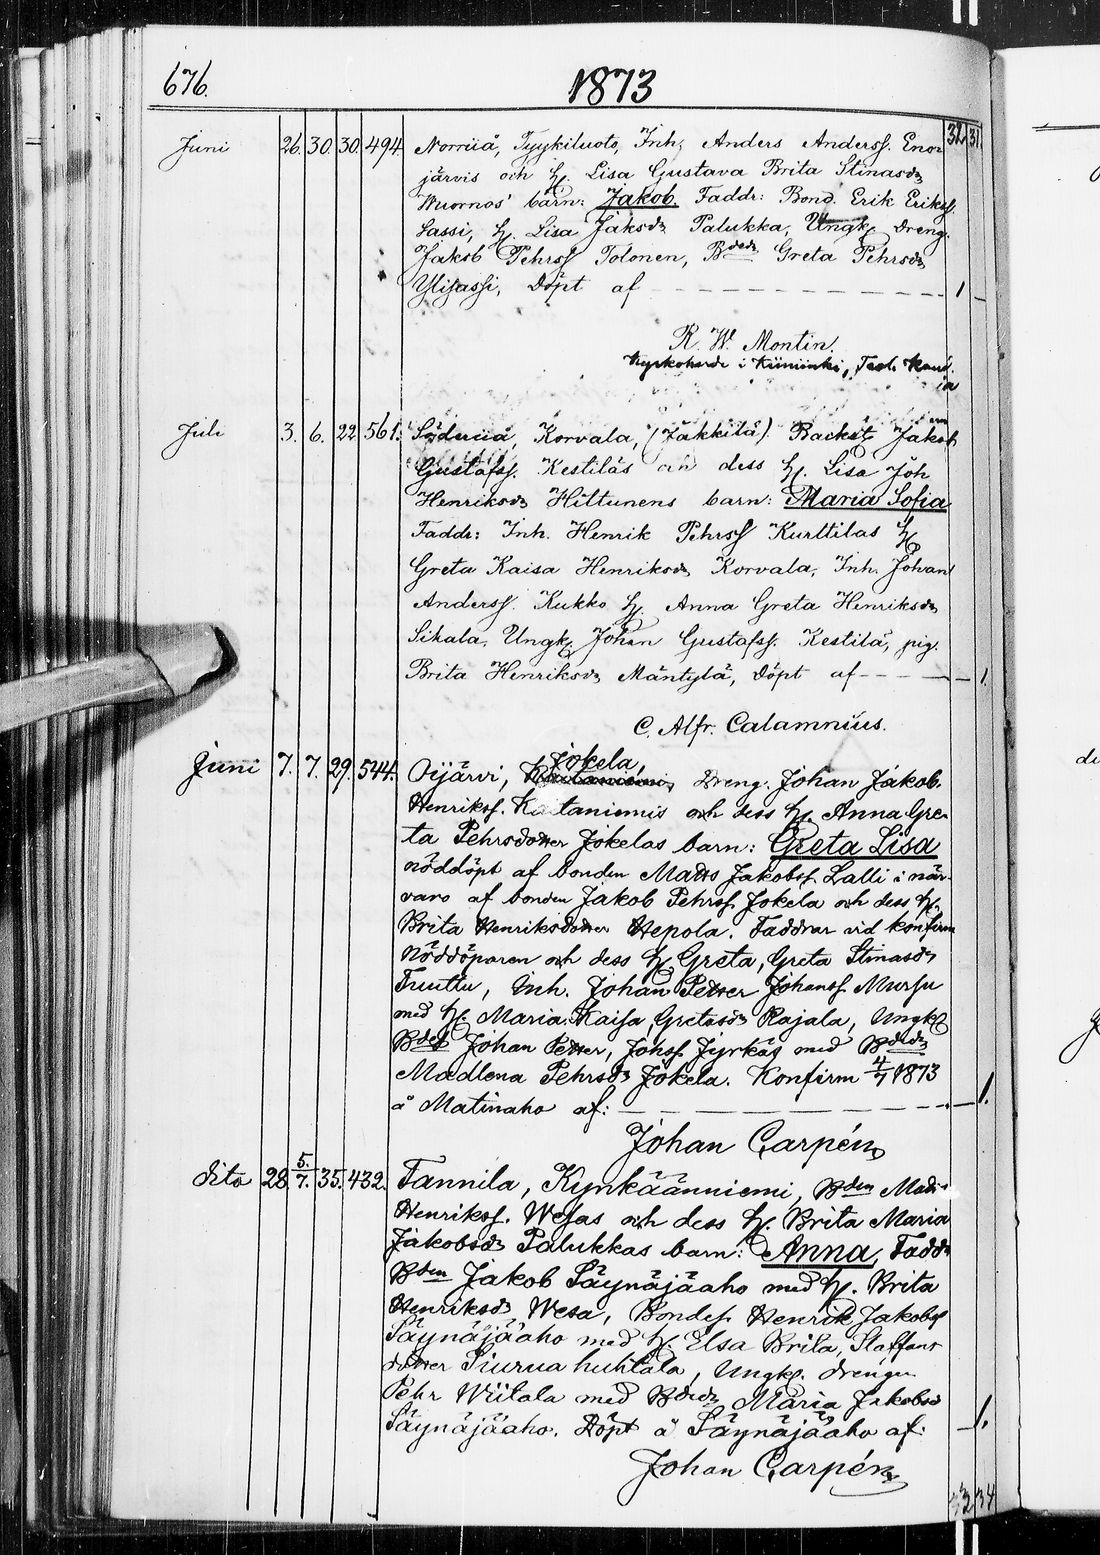 676. 1873
32 31
Juni 26. 30. 30. 494. Norriiå, Tyykiluoto, Inh, Anders Anderss. Eno-
järvis och h. Lisa Gustava Brita Stinasdr
Wuornos' barn: Jakob. Faddr: Bond. Erik Erikss.
Sassi, h. Lisa Jaksdr Palukka, Ungk. dreng.
Jakob Pehrss Tolonen, Bdedr Greta Pehrsdr
Ylisassi, Döpt af 1
R. W. Montin.
Kyrkoherde i Kiiminki,
Juli 3. 6. 22 561. Söderiiå, Korvala, (Jäkkilä). Backst Jakob
Gustafss. Kestiläs och dess h. Lisa Joh
Henriksdr Hiltunens barn: Maria Sofia
Faddr: Inh. Henrik Pehrss Kurttilas h
Greta Kaisa Henriksdr Korvala, Inh. Johan
Anderss. Kukko h. Anna Greta Henriksdr
Sikala, Ungk. Johan Gustafss. Kestilä, pig.
Brita Henriksdr Mäntylä, Döpt af 1.
C. Alfr. Calamnius.
Jokela,
Juni 7. 7. 29. 544. Oijärvi, Dreng. Johan Jakob.
Henrikss. Kaitaniemis och dess h. Anna Gre-
ta Pehrsdotter Jokelas barn: Greta Lisa
nöddöpt af bonden Matts Jakobss. Lalli i när-
varo af bonden Jakob Pehrss. Jokela och dess h.
Brita Henriksdotter Hepola. Faddrar vid konfirm
Nöddöparen och dess h. Greta, Greta Stinasdr
Tuuttu, Inh. Johan Petter Johanss. Mursu
med h. Maria Kaisa Gretasdr Rajala, Ungk.
Bdes Johan Petter, Johss. Jyrkäs med Bdedr
Madlena Pehrsdr Jokela. Konfirm 4/7 1873
å Matinaho af: 1.
Johan Carpén
dito 28. 5./7. 35. 432. Tannila, Kynkäänniemi, Bden Mads
Henrikss. Wesas och dess h. Brita Maria
Jakobsdr Palukkas barn: Anna, Fadd:
Bden Jakob Säynäjäaho med h. Brita
Henriksdr Wesa, Bondes Henrik Jakobss
Säynäjäaho med h. Elsa Brita, Staffans
dotter Siurua huhtala, Ungk. drengen
Pehr Wiitala med Bdedr Maria Jakobsd
Säynäjäaho. Döpt å Säynäjäaho af: 1.
Johan Carpén
32 34